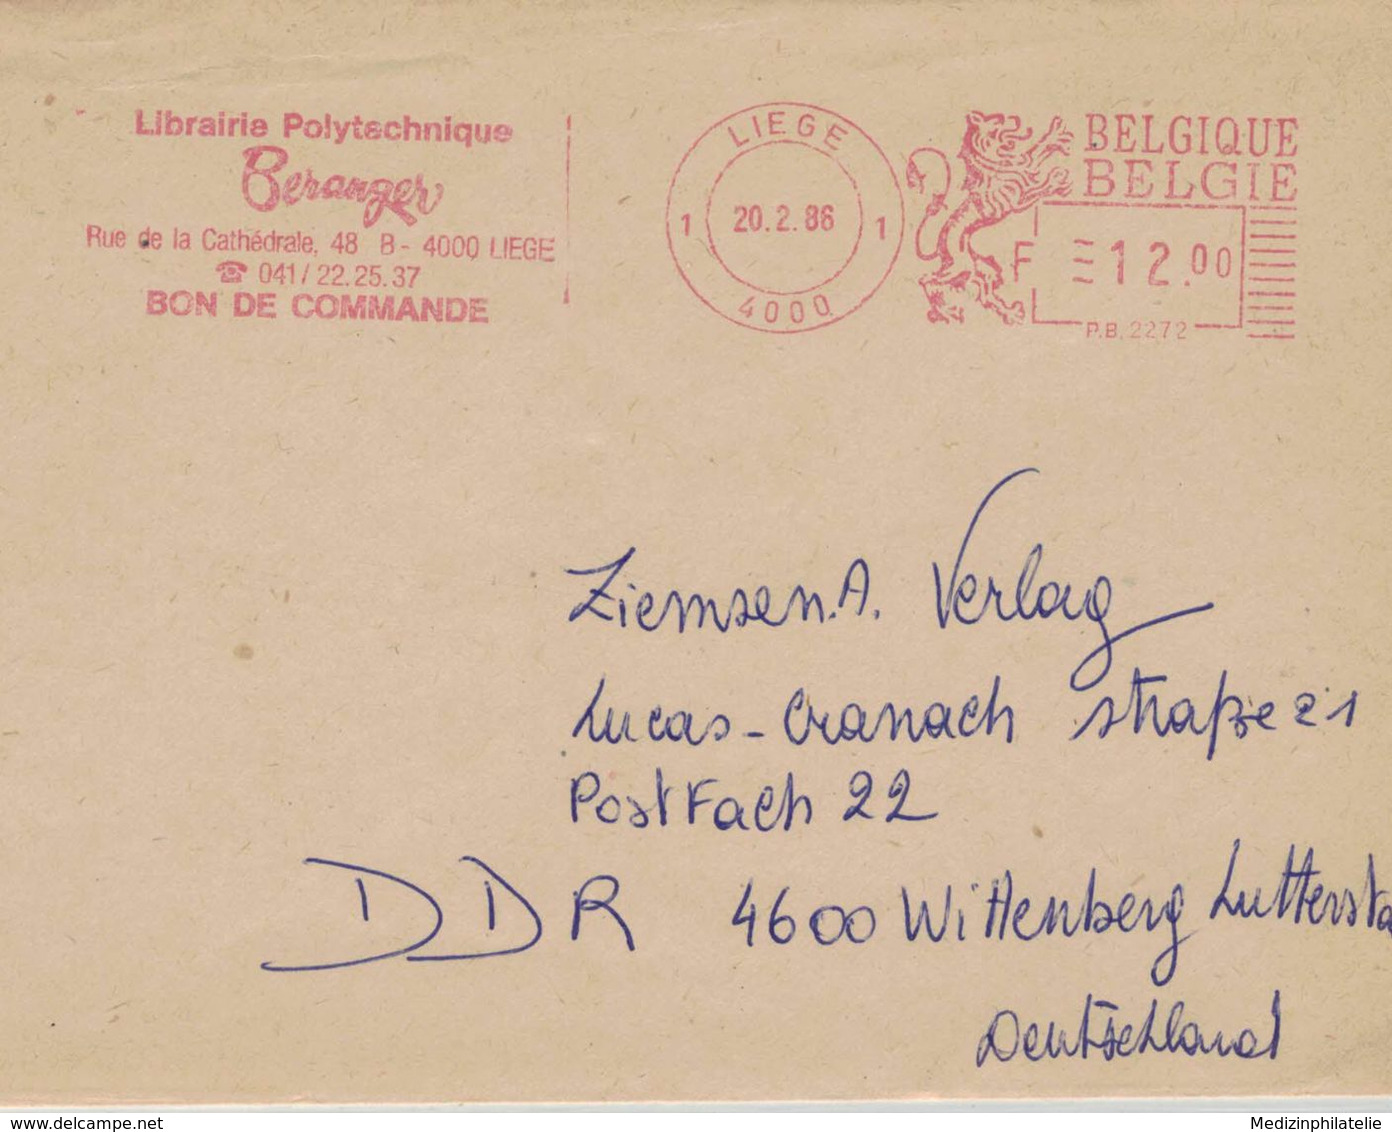 Librairie Polytechnique
Beranger
Rue de la Cathédrale, 48 B - 4000 LIEGE
☎ 041/22.25.37
BON DE COMMANDE
LIEGE
1 20.2.86 1
4000
BELGIQUE
BELGIE
F 12.00
P.B. 2272
Ziemsen.A. Verlag
Lucas-Cranach straße 21
PostFach 22
DDR 4600 Wittenberg Luttersta
Deutschland
www.delcampe.net
Medizinphilatelie